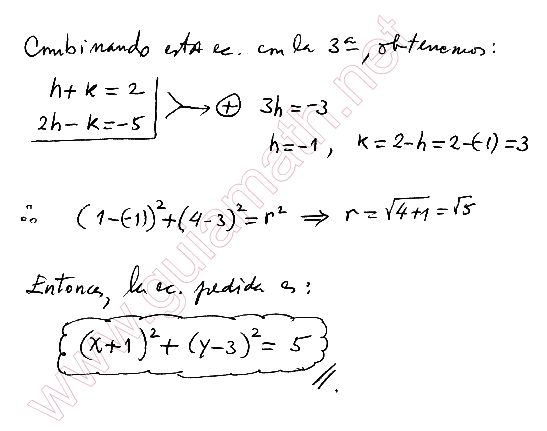 Combinando esta ec. con la 3ª, obtenemos:
h + k = 2
2h - k = -5
⊕ 3h = -3
h = -1, k = 2-h = 2-(-1) = 3
∴ (1-(-1))² + (4-3)² = r² ⇒ r = √4+1 = √5
Entonces, la ec. pedida es:
(x+1)² + (y-3)² = 5
www.guiamath.net